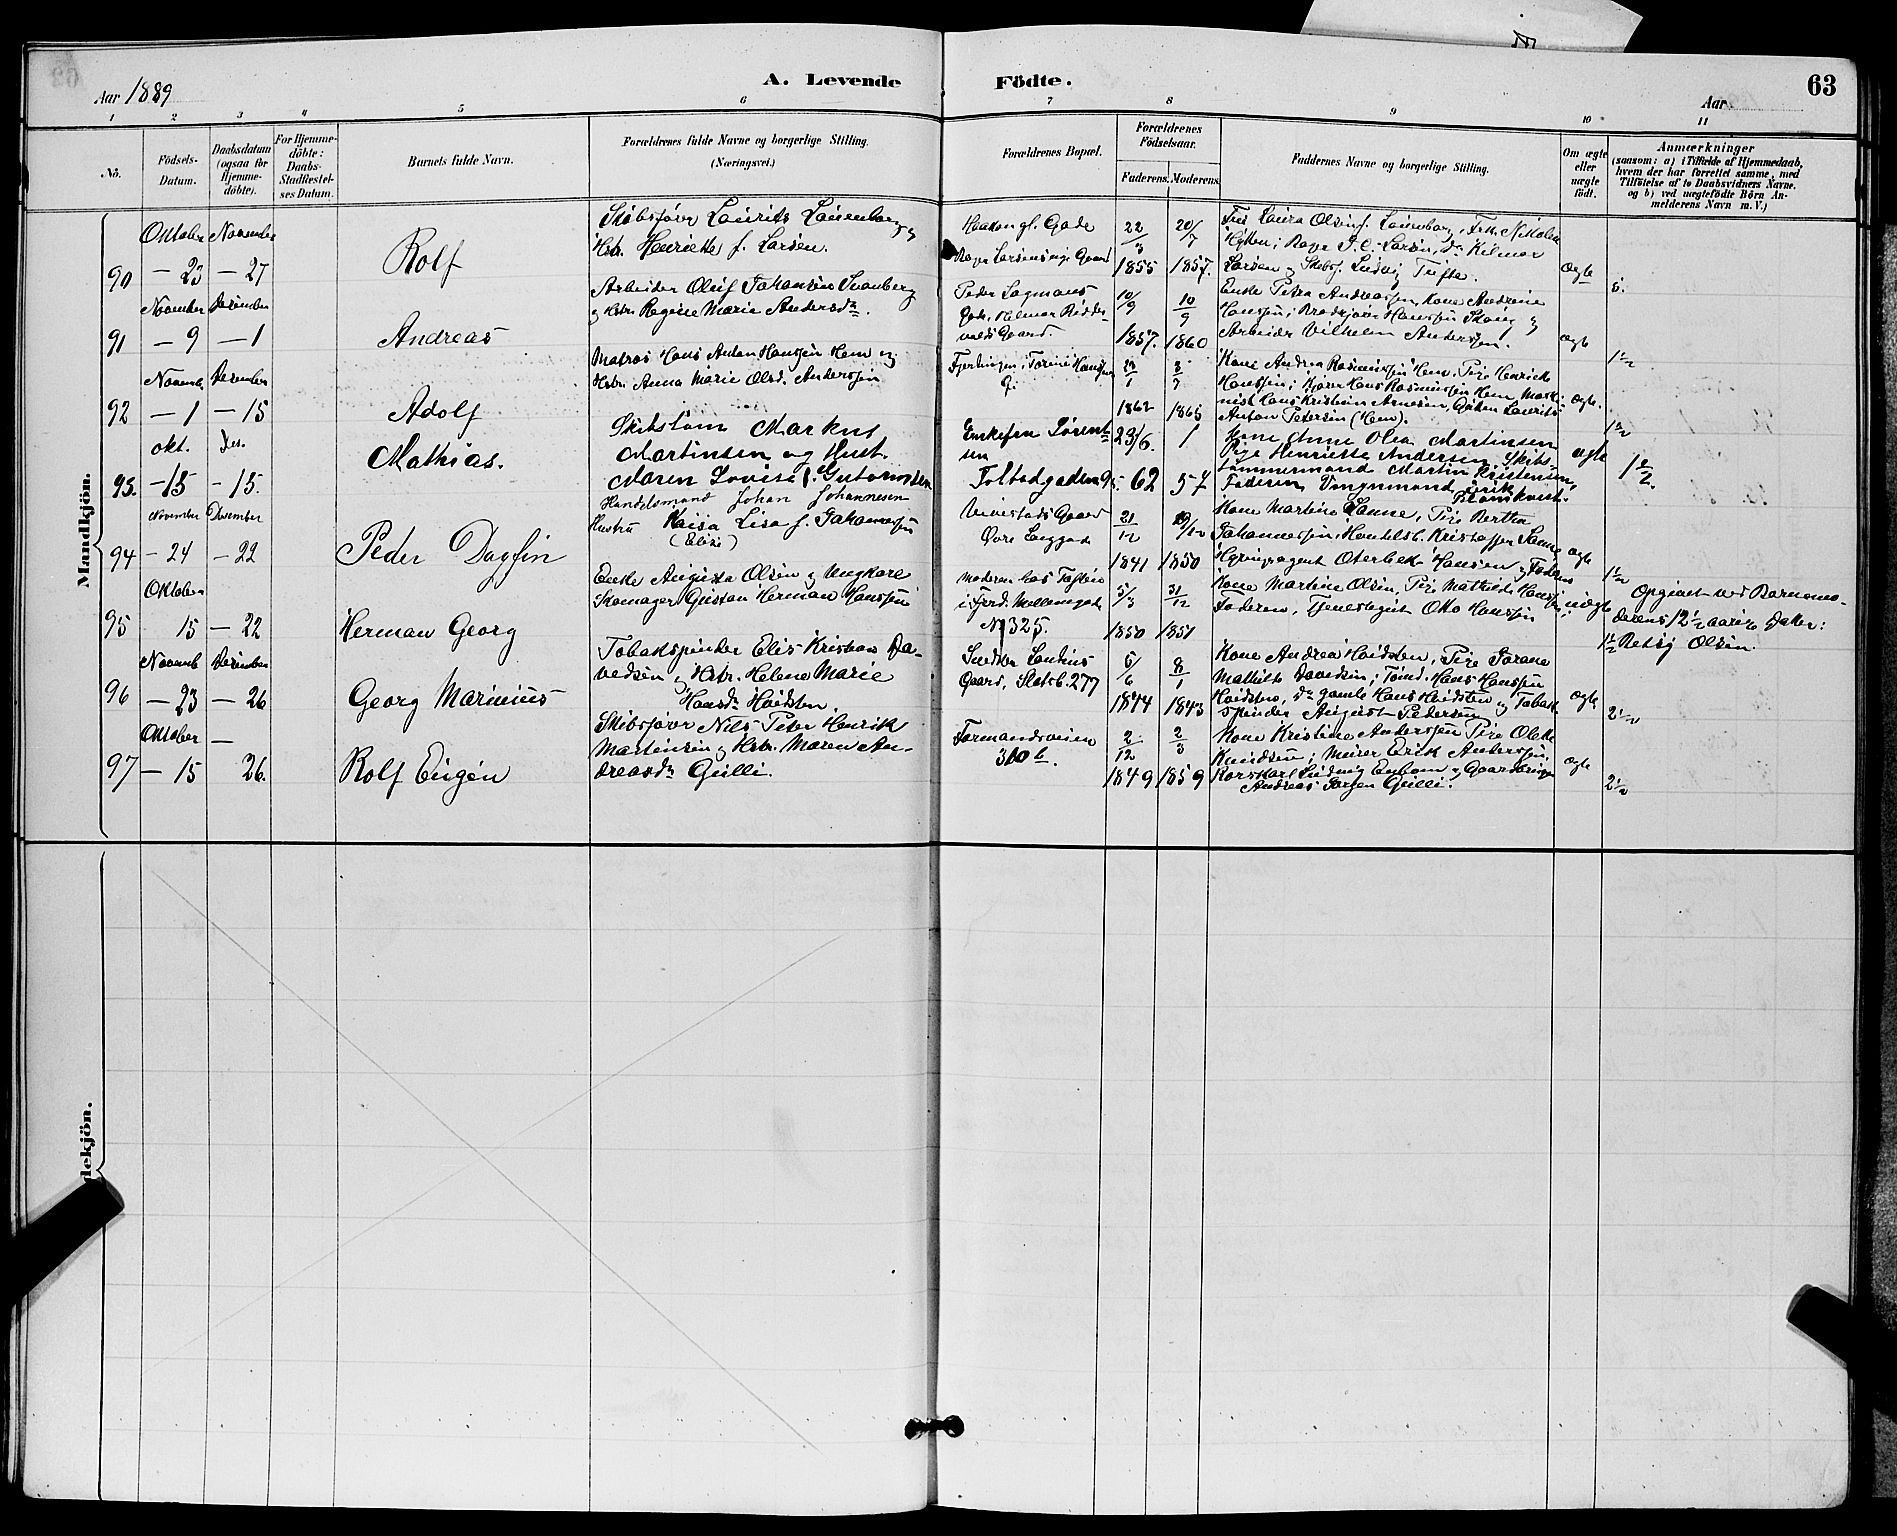 63
Aar 1889
A. Levende Födte.
Aar
1 2 3 4 5 6 7 8 9 10 11
Nö.
Födsels-Datum.
Daabsdatum (ogsaa for Hjemme-döbte).
For Hjemme-döbte: Daabs-Stadfæstel-ses Datum.
Barnets fulde Navn.
Forældrenes fulde Navne og borgerlige Stilling.
(Næringsvei.)
Forældrenes Bopæl.
Forældrenes Födselsaar.
Faderens. Moderens.
Faddernes Navne og borgerlige Stilling.
Om ægte eller uægte födt.
Anmærkninger
(saasom: a) i Tilfælde af Hjemmedaab,
hvem der har forrettet samme, med
Tilföielse af to Daabsvidners Navne.
og b) ved uægtefödte Börn An-
melderens Navn m. V.)
Mandkjön.
90
Oktober — 23
November — 27
Rolf
Skibsfører Laurits Lauenborg og
Hstr. Henriette f. Larsen.
Haakon gl. Gade
22/3 1855
20/7 1857.
Larsen og Skibsf. Ludvig Tufte.
ægte
91
November — 9
December — 1
Andreas
Arbeider Oluf Johansen Svanberg
og Hstr. Regine Marie Andersdr.
Peder Lagmans
Gade, Helmer Ridder-
volds Gaard.
10/9 1857.
10/9 1860
Enke Petra Andreassen, Kone Andrine
Arbeider Vilhelm Andersen.
ægte
1 1/2
92
Novemb. — 1
December — 15
Adolf
Matros Hans Anton Hanssen Hem og
Hstr. Anna Marie Olsd. Anderssen
1862
1865
Kone Andrea Rasmussen Hem, Pige Henriette
Hanssen; Kjører Hans Rasmussen Hem, Mask-
nist Hans Kristian Arnesen, Gørtler Laurits
Anton Petersen (Hem).
ægte.
1 1/2
93.
Okt. — 15
Des. — 15.
Mathias.
Skibstøm Markus
Martinsen og Hust.
Maren Lovise f. Gutormsen
Enkefru Sørent
sen
Tolbodgaden 95.
23/6. 62
1 57
Kone Anne Olea Martinsen
Pige Henriette Andersen, Skibs-
tømmermand Martin Kristensen,
Faderen, Vognmand Erik
Blomkvist.
ægte
1 1/2.
94
November — 24
Desember — 22
Peder Dagfin
Handelsmand Johan Johannesen
Hustru Kaisa Lisa f. Johannessen
(Elise)
Øvre Langgade
21/12 1841
1850
Kone Martine Sanne, Pige Bertha
Johannessen; Handelsb. Kristoffer Sanne
Hyringsagent Oterbek Hansen og Faderen
ægte
1 1/2
95
Oktober 15
— 22
Herman Georg
Enke Augusta Olsen og Ungkarl
Skomager Gustav Herman Hanssen
i Fjerd. Mellemgade
No 325.
5/3 1850
31/12 1851
Kone Martine Olsen, Pige Mathilde Hanssen;
Faderen, Tjenestegut Otto Hanssen
uægte
Opgivet ved Barnemo-
derens 12 1/2 aarige Datter:
1 1/2 Betsy Olsen.
96
Novemb — 23
Desember — 26
Georg Marinius
Tobakspinder Elis Kristian Da-
vedsen og Hstr. Helene Marie
Hansdr Høidsten.
Snedker Lantius
Gaard, Slotsb. 277
5/6 1844
8/1 1843
Kone Andrea Høidsten, Pige Josane
Mathilde Davedsen; Tømd. Hans Hanssen
Høidsten, Dr gamle Hans Høidsten og Tobak-
spinder August Pedersen
ægte
2 1/2
97
Oktober — 15
— 26.
Rolf Eugén
Skibsfører Nils Peter Henrik
Martensen og Hstr. Maren An-
dreasdr Gulli.
Formandsveien
310 b.
2/12 1849
2/3 1859
Kone Kristine Anderssen Pige Olette
Knudsen; Murer Erik Anderssen,
Korskarl Ludvig Enbom og Gaardbruger
Andreas Jørgen Gulli.
ægte
2 1/2
dekjön.